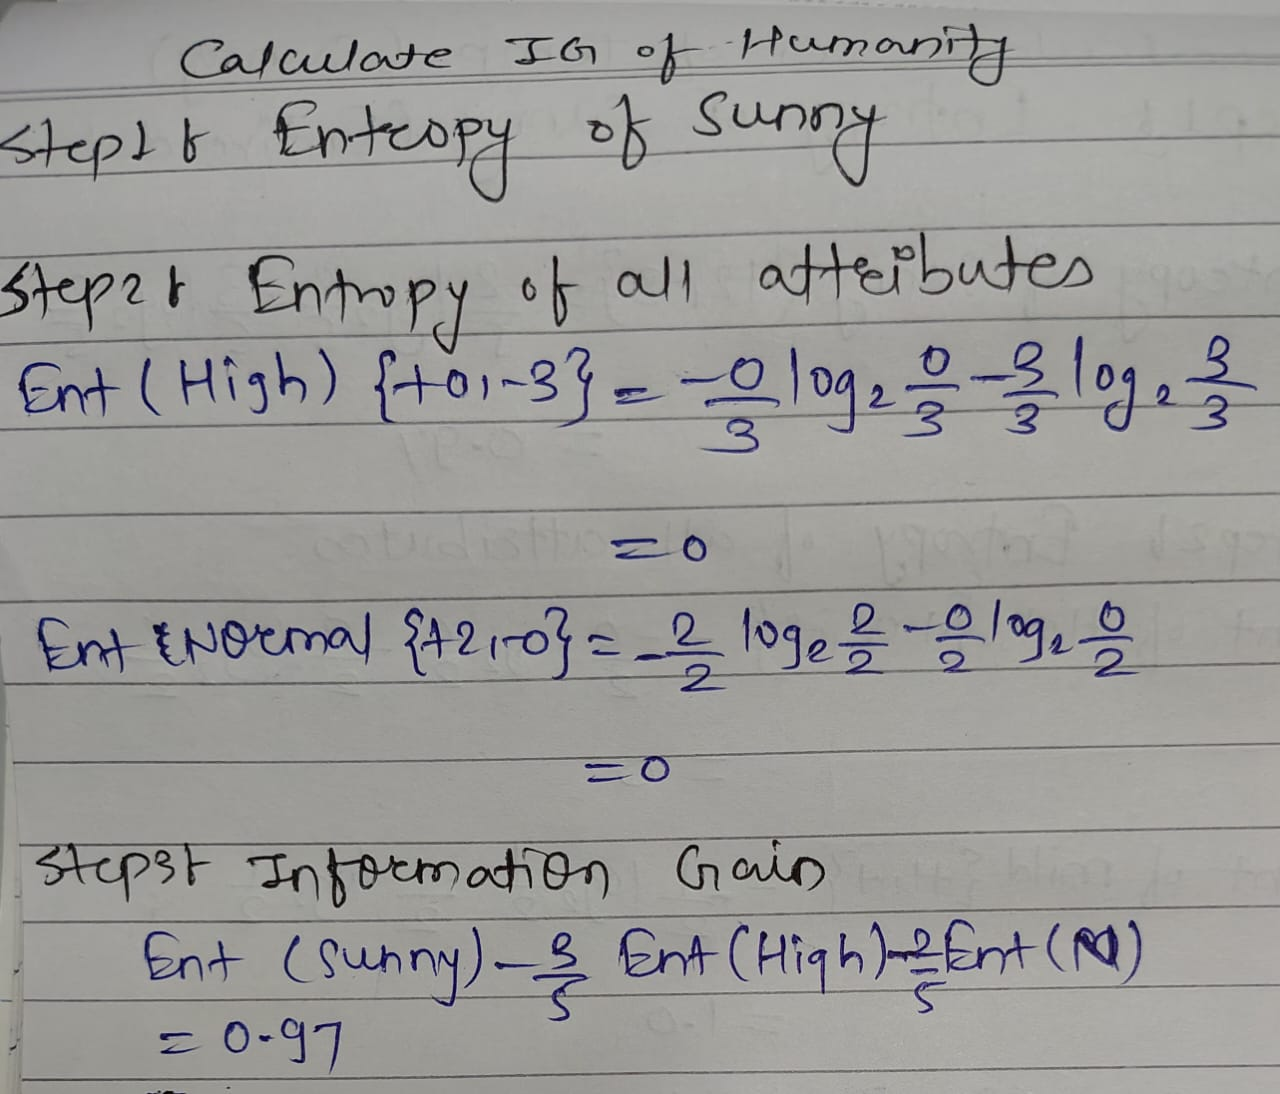 Calculate IG of Humanity
Step1: Entropy of Sunny
Step2: Entropy of all attributes
Ent (High) {+0,-3} = -0/3 log₂ 0/3 - 3/3 log₂ 3/3
= 0
Ent {Normal {+2,-0} = -2/2 log₂ 2/2 - 0/2 log₂ 0/2
= 0
Step3: Information Gain
Ent (Sunny) - 3/5 Ent (High) - 2/5 Ent (N)
= 0.97